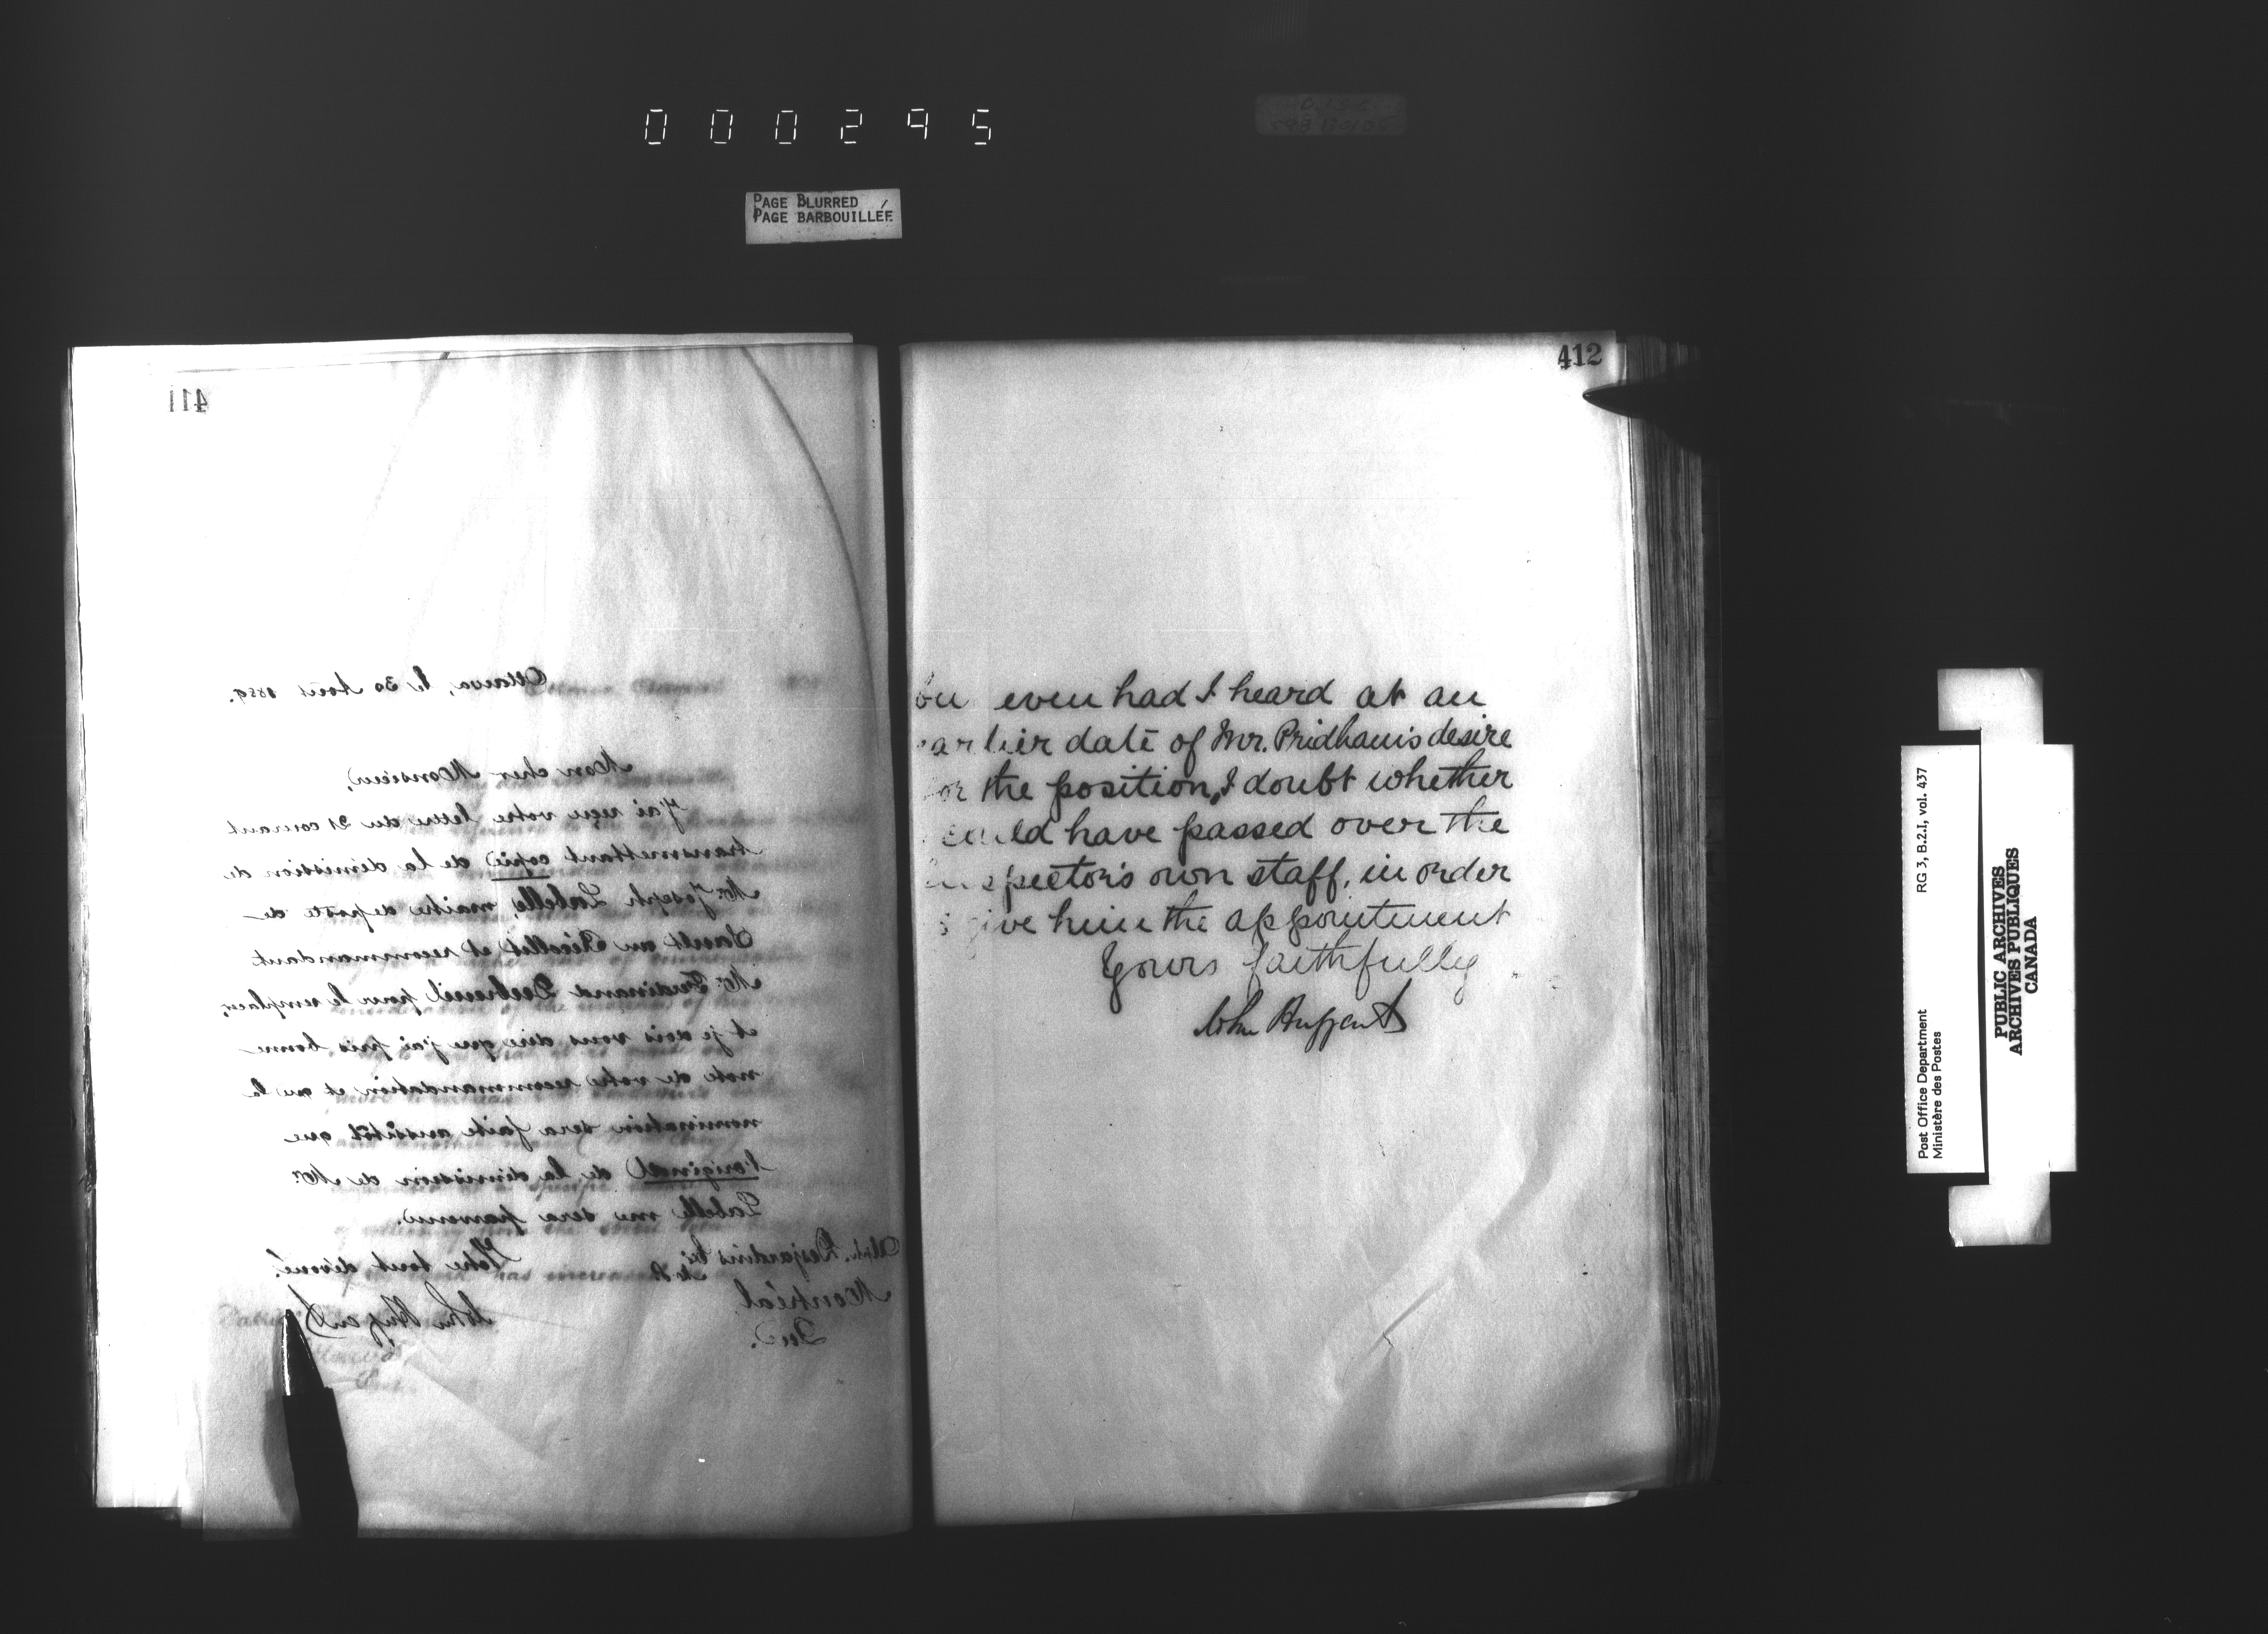 000295
PAGE BLURRED
PAGE BARBOUILLÉE
411
Ottawa, le 30 Août 1889.
Mon cher Monsieur,
J'ai reçu votre lettre du 21 courant
transmettant copie de la démission de
Mr. Joseph Labelle, maître de poste de
Sault au Récollet et recommandant
Mr. Ferdinand Dubreuil pour le remplacer,
et je dois vous dire que j'ai pris bonne
note de votre recommandation et que la
nomination sera faite aussitôt que
l'original de la démission de Mr.
Labelle me sera parvenu.
Votre tout dévoué.
John Haggart
Alph. Desjardins
M.P.
Montréal
Que.
412
but even had I heard at an
earlier date of Mr. Pridham's desire
for the position, I doubt whether
could have passed over the
Inspector's own staff, in order
give him the appointment
Yours faithfully
John Haggart
Post Office Department
Ministère des Postes
RG 3, B.2.I, vol. 437
PUBLIC ARCHIVES
ARCHIVES PUBLIQUES
CANADA